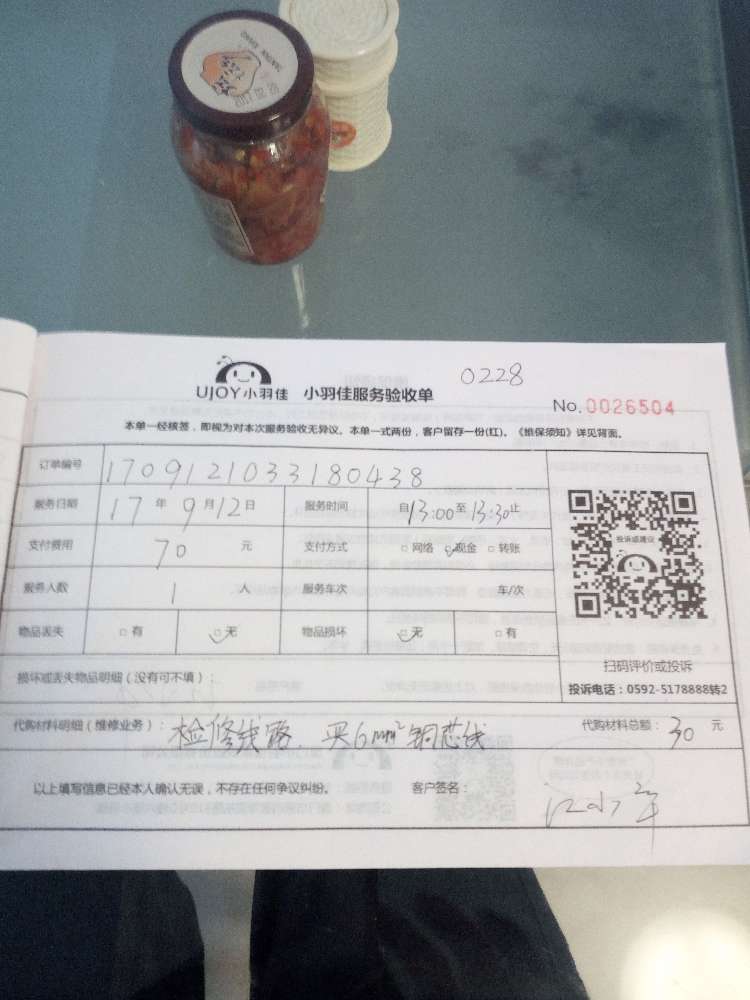 UJOY小羽佳 小羽佳服务验收单 0228
No. 0026504
本单一经核签，即视为对本次服务验收无异议。本单一式两份，客户留存一份(红)。《维保须知》详见背面。
订单编号 170912103318​0438
服务日期 17年9月12日 服务时间 自13:00至13:30止
支付费用 70 元 支付方式 □网络 □现金 □转账
投诉或建议
服务人数 1 人 服务车次 车/次
物品丢失 □有 □无 物品损坏 □无 □有
扫码评价或投诉
损坏或丢失物品明细（没有可不填）：
投诉电话：0592-5178888转2
代购材料明细（维修业务）：检修线路，买6mm²铜芯线 代购材料总额：30 元
以上填写信息已经本人确认无误，不存在任何争议纠纷。 客户签名：